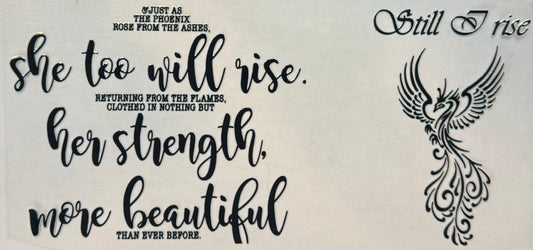 &JUST AS
THE PHOENIX
ROSE FROM THE ASHES,
she too will rise.
RETURNING FROM THE FLAMES,
CLOTHED IN NOTHING BUT
her strength,
more beautiful
THAN EVER BEFORE.
Still I rise